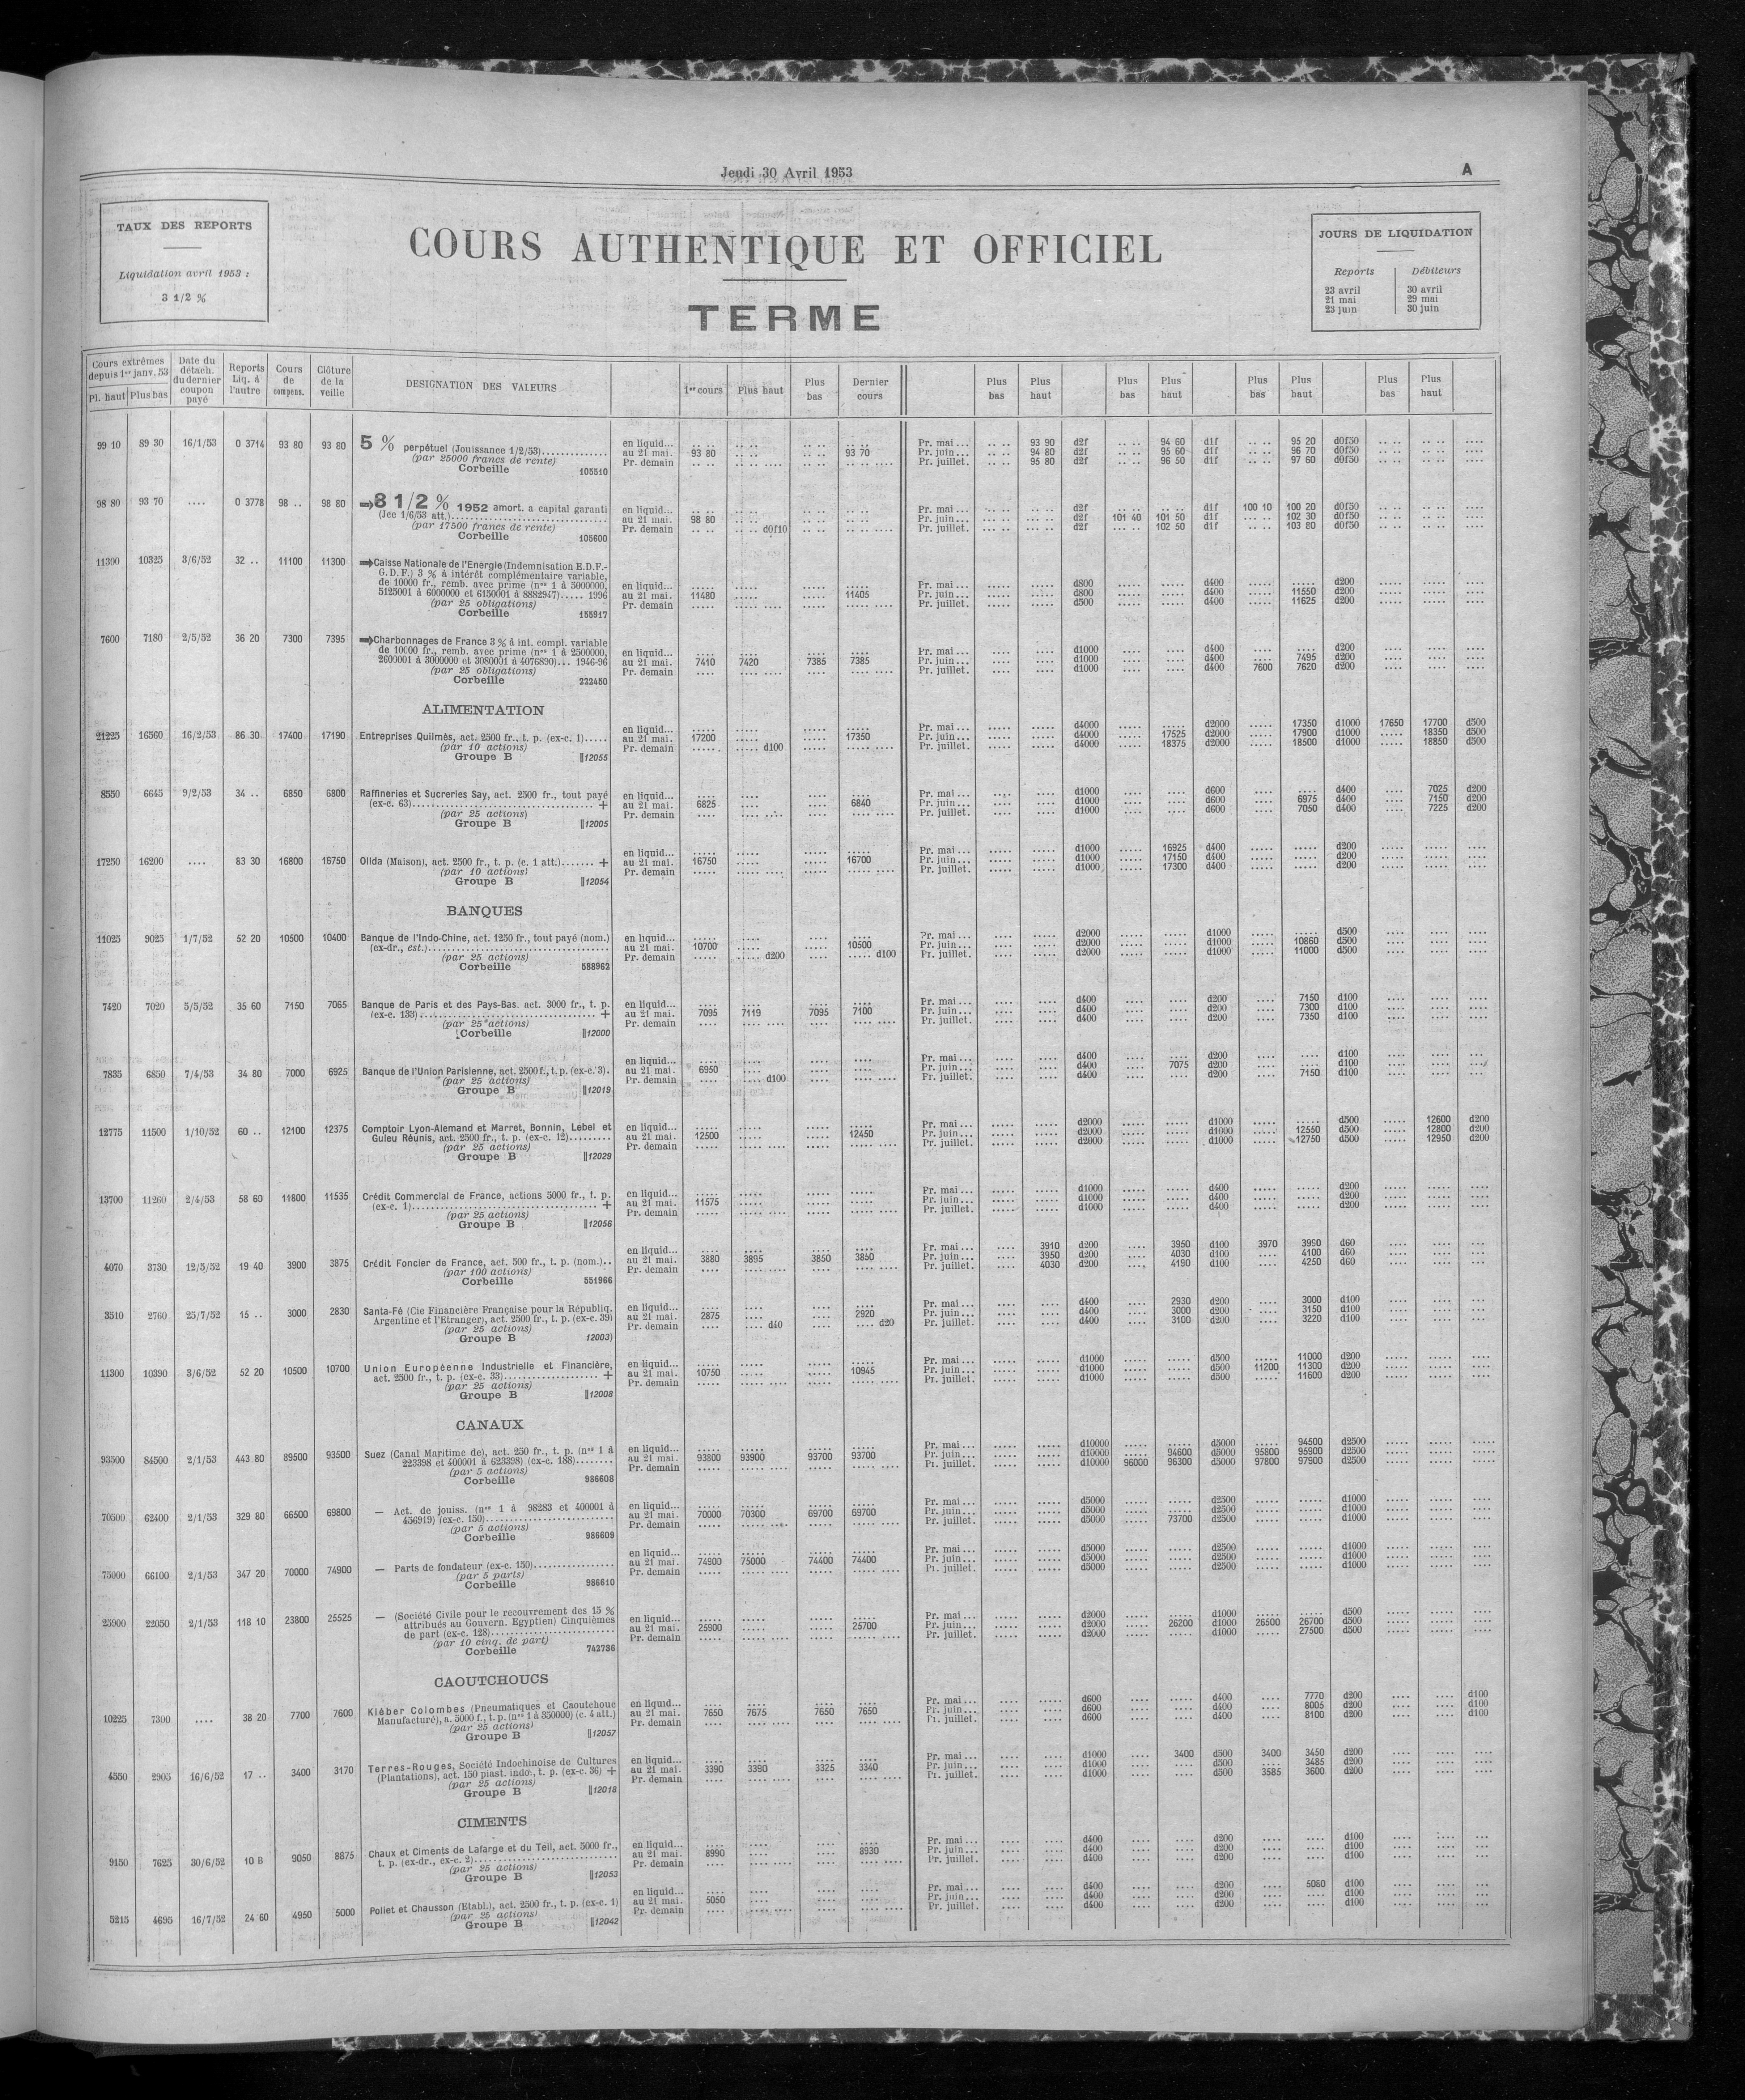 Jeudi 30 Avril 1953 A
TAUX DES REPORTS
Liquidation avril 1953 :
3 1/2 %
COURS AUTHENTIQUE ET OFFICIEL
TERME
JOURS DE LIQUIDATION
Reports Débiteurs
23 avril 30 avril
21 mai 29 mai
23 juin 30 juin
Cours extrêmes depuis 1er janv. 53 Pl. haut Plus bas
Date du détach. du dernier coupon payé
Reports Liq. à l'autre
Cours de compens.
Clôture de la veille
DESIGNATION DES VALEURS
1er cours Plus haut Plus bas Dernier cours
Plus bas Plus haut Plus bas Plus haut Plus bas Plus haut Plus bas Plus haut
99 10 89 30 16/1/53 0 3714 93 80 93 80 5 % perpétuel (Jouissance 1/2/53)
(par 25000 francs de rente)
Corbeille 105510
en liquid... Pr. mai ... 93 90 d2f 94 60 d1f 95 20 d0f50
au 21 mai. 93 80 93 70 Pr. juin... 94 80 d2f 95 60 d1f 96 70 d0f50
Pr. demain Pr. juillet. 95 80 d2f 96 50 d1f 97 60 d0f50
98 80 93 70 .... 0 3778 98 .. 98 80 8 1/2 % 1952 amort. a capital garanti
(Jce 1/6/53 att.)
(par 17500 francs de rente)
Corbeille 105600
en liquid... Pr. mai ... d2f d1f 100 10 100 20 d0f50
au 21 mai. 98 80 Pr. juin... d2f 101 40 101 50 d1f 102 30 d0f50
Pr. demain d0f10 Pr. juillet. d2f 102 50 d1f 103 80 d0f50
11300 10325 3/6/52 32 .. 11100 11300 Caisse Nationale de l'Energie (Indemnisation E.D.F.-
G.D.F.) 3 % à intérêt complémentaire variable,
de 10000 fr., remb. avec prime (nos 1 à 5000000,
5125001 à 6000000 et 6150001 à 8882947)..... 1996
(par 25 obligations)
Corbeille 155917
en liquid... Pr. mai ... d800 d400 d200
au 21 mai. 11480 11405 Pr. juin... d800 d400 11550 d200
Pr. demain Pr. juillet. d500 d400 11625 d200
7600 7180 2/5/52 36 20 7300 7395 Charbonnages de France 3 % à int. compl. variable
de 10000 fr., remb. avec prime (nos 1 à 2500000,
2600001 à 3000000 et 3080001 à 4076890)... 1946-96
(par 25 obligations)
Corbeille 222450
en liquid... Pr. mai ... d1000 d400 d200
au 21 mai. 7410 7420 7385 7385 Pr. juin... d1000 d400 7495 d200
Pr. demain Pr. juillet. d1000 d400 7600 7620 d200
ALIMENTATION
21225 16560 16/2/53 86 30 17400 17190 Entreprises Quilmès, act. 2500 fr., t. p. (ex-c. 1).....
(par 10 actions)
Groupe B 12055
en liquid... Pr. mai ... d4000 d2000 17350 d1000 17650 17700 d500
au 21 mai. 17200 17350 Pr. juin... d4000 17525 d2000 17900 d1000 18350 d500
Pr. demain d100 Pr. juillet. d4000 18375 d2000 18500 d1000 18850 d500
8550 6645 9/2/53 34 .. 6850 6800 Raffineries et Sucreries Say, act. 2500 fr., tout payé
(ex-c. 63) +
(par 25 actions)
Groupe B 12005
en liquid... Pr. mai ... d1000 d600 d400 7025 d200
au 21 mai. 6825 6840 Pr. juin... d1000 d600 6975 d400 7150 d200
Pr. demain Pr. juillet. d1000 d600 7050 d400 7225 d200
17250 16200 .... 83 30 16800 16750 Olida (Maison), act. 2500 fr., t. p. (c. 1 att.)....... +
(par 10 actions)
Groupe B 12054
en liquid... Pr. mai ... d1000 16925 d400 d200
au 21 mai. 16750 16700 Pr. juin... d1000 17150 d400 d200
Pr. demain Pr. juillet. d1000 17300 d400 d200
BANQUES
11025 9025 1/7/52 52 20 10500 10400 Banque de l'Indo-Chine, act. 1250 fr., tout payé (nom.)
(ex-dr., est.)
(par 25 actions)
Corbeille 588962
en liquid... Pr. mai ... d2000 d1000 d500
au 21 mai. 10700 10500 Pr. juin... d2000 d1000 10860 d500
Pr. demain d200 d100 Pr. juillet. d2000 d1000 11000 d500
7420 7020 5/5/52 35 60 7150 7065 Banque de Paris et des Pays-Bas. act. 3000 fr., t. p.
(ex-c. 133) +
(par 25 actions)
Corbeille 12000
en liquid... Pr. mai ... d400 d200 7150 d100
au 21 mai. 7095 7119 7095 7100 Pr. juin... d400 d200 7300 d100
Pr. demain Pr. juillet. d400 d200 7350 d100
7835 6850 7/4/53 34 80 7000 6925 Banque de l'Union Parisienne, act. 2500 f., t. p. (ex-c. 3).
(par 25 actions)
Groupe B 12019
en liquid... Pr. mai ... d400 d200 d100
au 21 mai. 6950 Pr. juin... d400 7075 d200 d100
Pr. demain d100 Pr. juillet. d400 d200 7150 d100
12775 11500 1/10/52 60 .. 12100 12375 Comptoir Lyon-Alemand et Marret, Bonnin, Lebel et
Guieu Réunis, act. 2500 fr., t. p. (ex-c. 12)........
(par 25 actions)
Groupe B 12029
en liquid... Pr. mai ... d2000 d1000 d500 12600 d200
au 21 mai. 12500 12450 Pr. juin... d2000 d1000 12550 d500 12800 d200
Pr. demain Pr. juillet. d2000 d1000 12750 d500 12950 d200
13700 11260 2/4/53 58 60 11800 11535 Crédit Commercial de France, actions 5000 fr., t. p.
(ex-c. 1) +
(par 25 actions)
Groupe B 12056
en liquid... Pr. mai ... d1000 d400 d200
au 21 mai. 11575 Pr. juin... d1000 d400 d200
Pr. demain Pr. juillet. d1000 d400 d200
4070 3730 12/5/52 19 40 3900 3875 Crédit Foncier de France, act. 500 fr., t. p. (nom.)..
(par 100 actions)
Corbeille 551966
en liquid... Pr. mai ... 3910 d200 3950 d100 3970 3990 d60
au 21 mai. 3880 3895 3850 3850 Pr. juin... 3950 d200 4030 d100 4100 d60
Pr. demain Pr. juillet. 4030 d200 4190 d100 4250 d60
3510 2760 25/7/52 15 .. 3000 2830 Santa-Fé (Cie Financière Française pour la Républiq.
Argentine et l'Etranger), act. 2500 fr., t. p. (ex-c. 39)
(par 25 actions)
Groupe B 12003)
en liquid... Pr. mai ... d400 2930 d200 3000 d100
au 21 mai. 2875 2920 Pr. juin... d400 3000 d200 3150 d100
Pr. demain d40 d20 Pr. juillet. d400 3100 d200 3220 d100
11300 10390 3/6/52 52 20 10500 10700 Union Européenne Industrielle et Financière,
act. 2500 fr., t. p. (ex-c. 33) +
(par 25 actions)
Groupe B 12008
en liquid... Pr. mai ... d1000 d500 11000 d200
au 21 mai. 10750 10945 Pr. juin... d1000 d500 11200 11300 d200
Pr. demain Pr. juillet. d1000 d500 11600 d200
CANAUX
93500 84500 2/1/53 443 80 89500 93500 Suez (Canal Maritime de), act. 250 fr., t. p. (nos 1 à
223398 et 400001 à 623398) (ex-c. 188)........
(par 5 actions)
Corbeille 986608
en liquid... Pr. mai ... d10000 d5000 94500 d2500
au 21 mai. 93800 93900 93700 93700 Pr. juin... d10000 94600 d5000 95800 95900 d2500
Pr. demain Pr. juillet. d10000 96000 96300 d5000 97800 97900 d2500
70500 62400 2/1/53 329 80 66500 69800 — Act. de jouiss. (nos 1 à 98283 et 400001 à
456919) (ex-c. 150)
(par 5 actions)
Corbeille 986609
en liquid... Pr. mai ... d5000 d2500 d1000
au 21 mai. 70000 70300 69700 69700 Pr. juin... d5000 d2500 d1000
Pr. demain Pr. juillet. d5000 73700 d2500 d1000
75000 66100 2/1/53 347 20 70000 74900 — Parts de fondateur (ex-c. 150)
(par 5 parts)
Corbeille 986610
en liquid... Pr. mai ... d5000 d2500 d1000
au 21 mai. 74900 75000 74400 74400 Pr. juin... d5000 d2500 d1000
Pr. demain Pr. juillet. d5000 d2500 d1000
25900 22050 2/1/53 118 10 23800 25525 — (Société Civile pour le recouvrement des 15 %
attribués au Gouvern. Egyptien) Cinquièmes
de part (ex-c. 128)
(par 10 cinq. de part)
Corbeille 742736
en liquid... Pr. mai ... d2000 d1000 d500
au 21 mai. 25900 25700 Pr. juin... d2000 26200 d1000 26500 26700 d500
Pr. demain Pr. juillet. d2000 d1000 27500 d500
CAOUTCHOUCS
10225 7300 .... 38 20 7700 7600 Kléber Colombes (Pneumatiques et Caoutchouc
Manufacturé), a. 5000 f., t. p. (nos 1 à 350000) (c. 4 att.)
(par 25 actions)
Groupe B 12057
en liquid... Pr. mai ... d600 d400 7770 d200 d100
au 21 mai. 7650 7675 7650 7650 Pr. juin... d600 d400 8005 d200 d100
Pr. demain Pr. juillet. d600 d400 8100 d200 d100
4550 2905 16/6/52 17 .. 3400 3170 Terres-Rouges, Société Indochinoise de Cultures
(Plantations), act. 150 piast. indo., t. p. (ex-c. 36) +
(par 25 actions)
Groupe B 12018
en liquid... Pr. mai ... d1000 3400 d500 3400 3450 d200
au 21 mai. 3390 3390 3325 3340 Pr. juin... d1000 d500 3485 d200
Pr. demain Pr. juillet. d1000 d500 3585 3600 d200
CIMENTS
9150 7625 30/6/52 10 B 9050 8875 Chaux et Ciments de Lafarge et du Teil, act. 5000 fr.,
t. p. (ex-dr., ex-c. 2)
(par 25 actions)
Groupe B 12053
en liquid... Pr. mai ... d400 d200 d100
au 21 mai. 8990 8930 Pr. juin... d400 d200 d100
Pr. demain Pr. juillet. d400 d200 d100
5215 4695 16/7/52 24 60 4950 5000 Poliet et Chausson (Etabl.), act. 2500 fr., t. p. (ex-c. 1)
(par 25 actions)
Groupe B 12042
en liquid... Pr. mai ... d400 d200 5080 d100
au 21 mai. 5050 Pr. juin... d400 d200 d100
Pr. demain Pr. juillet. d400 d200 d100